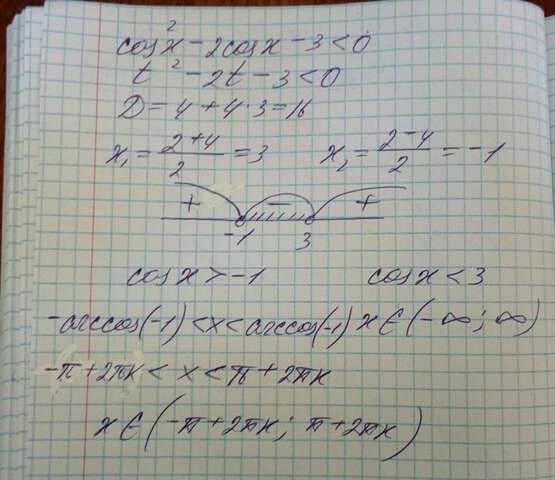 cos²x - 2cosx - 3 < 0
t² - 2t - 3 < 0
D = 4 + 4·3 = 16
x₁ = (2+4)/2 = 3    x₂ = (2-4)/2 = -1
+ - +
-1 3
cosx > -1    cosx < 3
-arccos(-1) < x < arccos(-1)  x ∈ (-∞; ∞)
-π + 2πк < x < π + 2πк
x ∈ (-π + 2πк; π + 2πк)